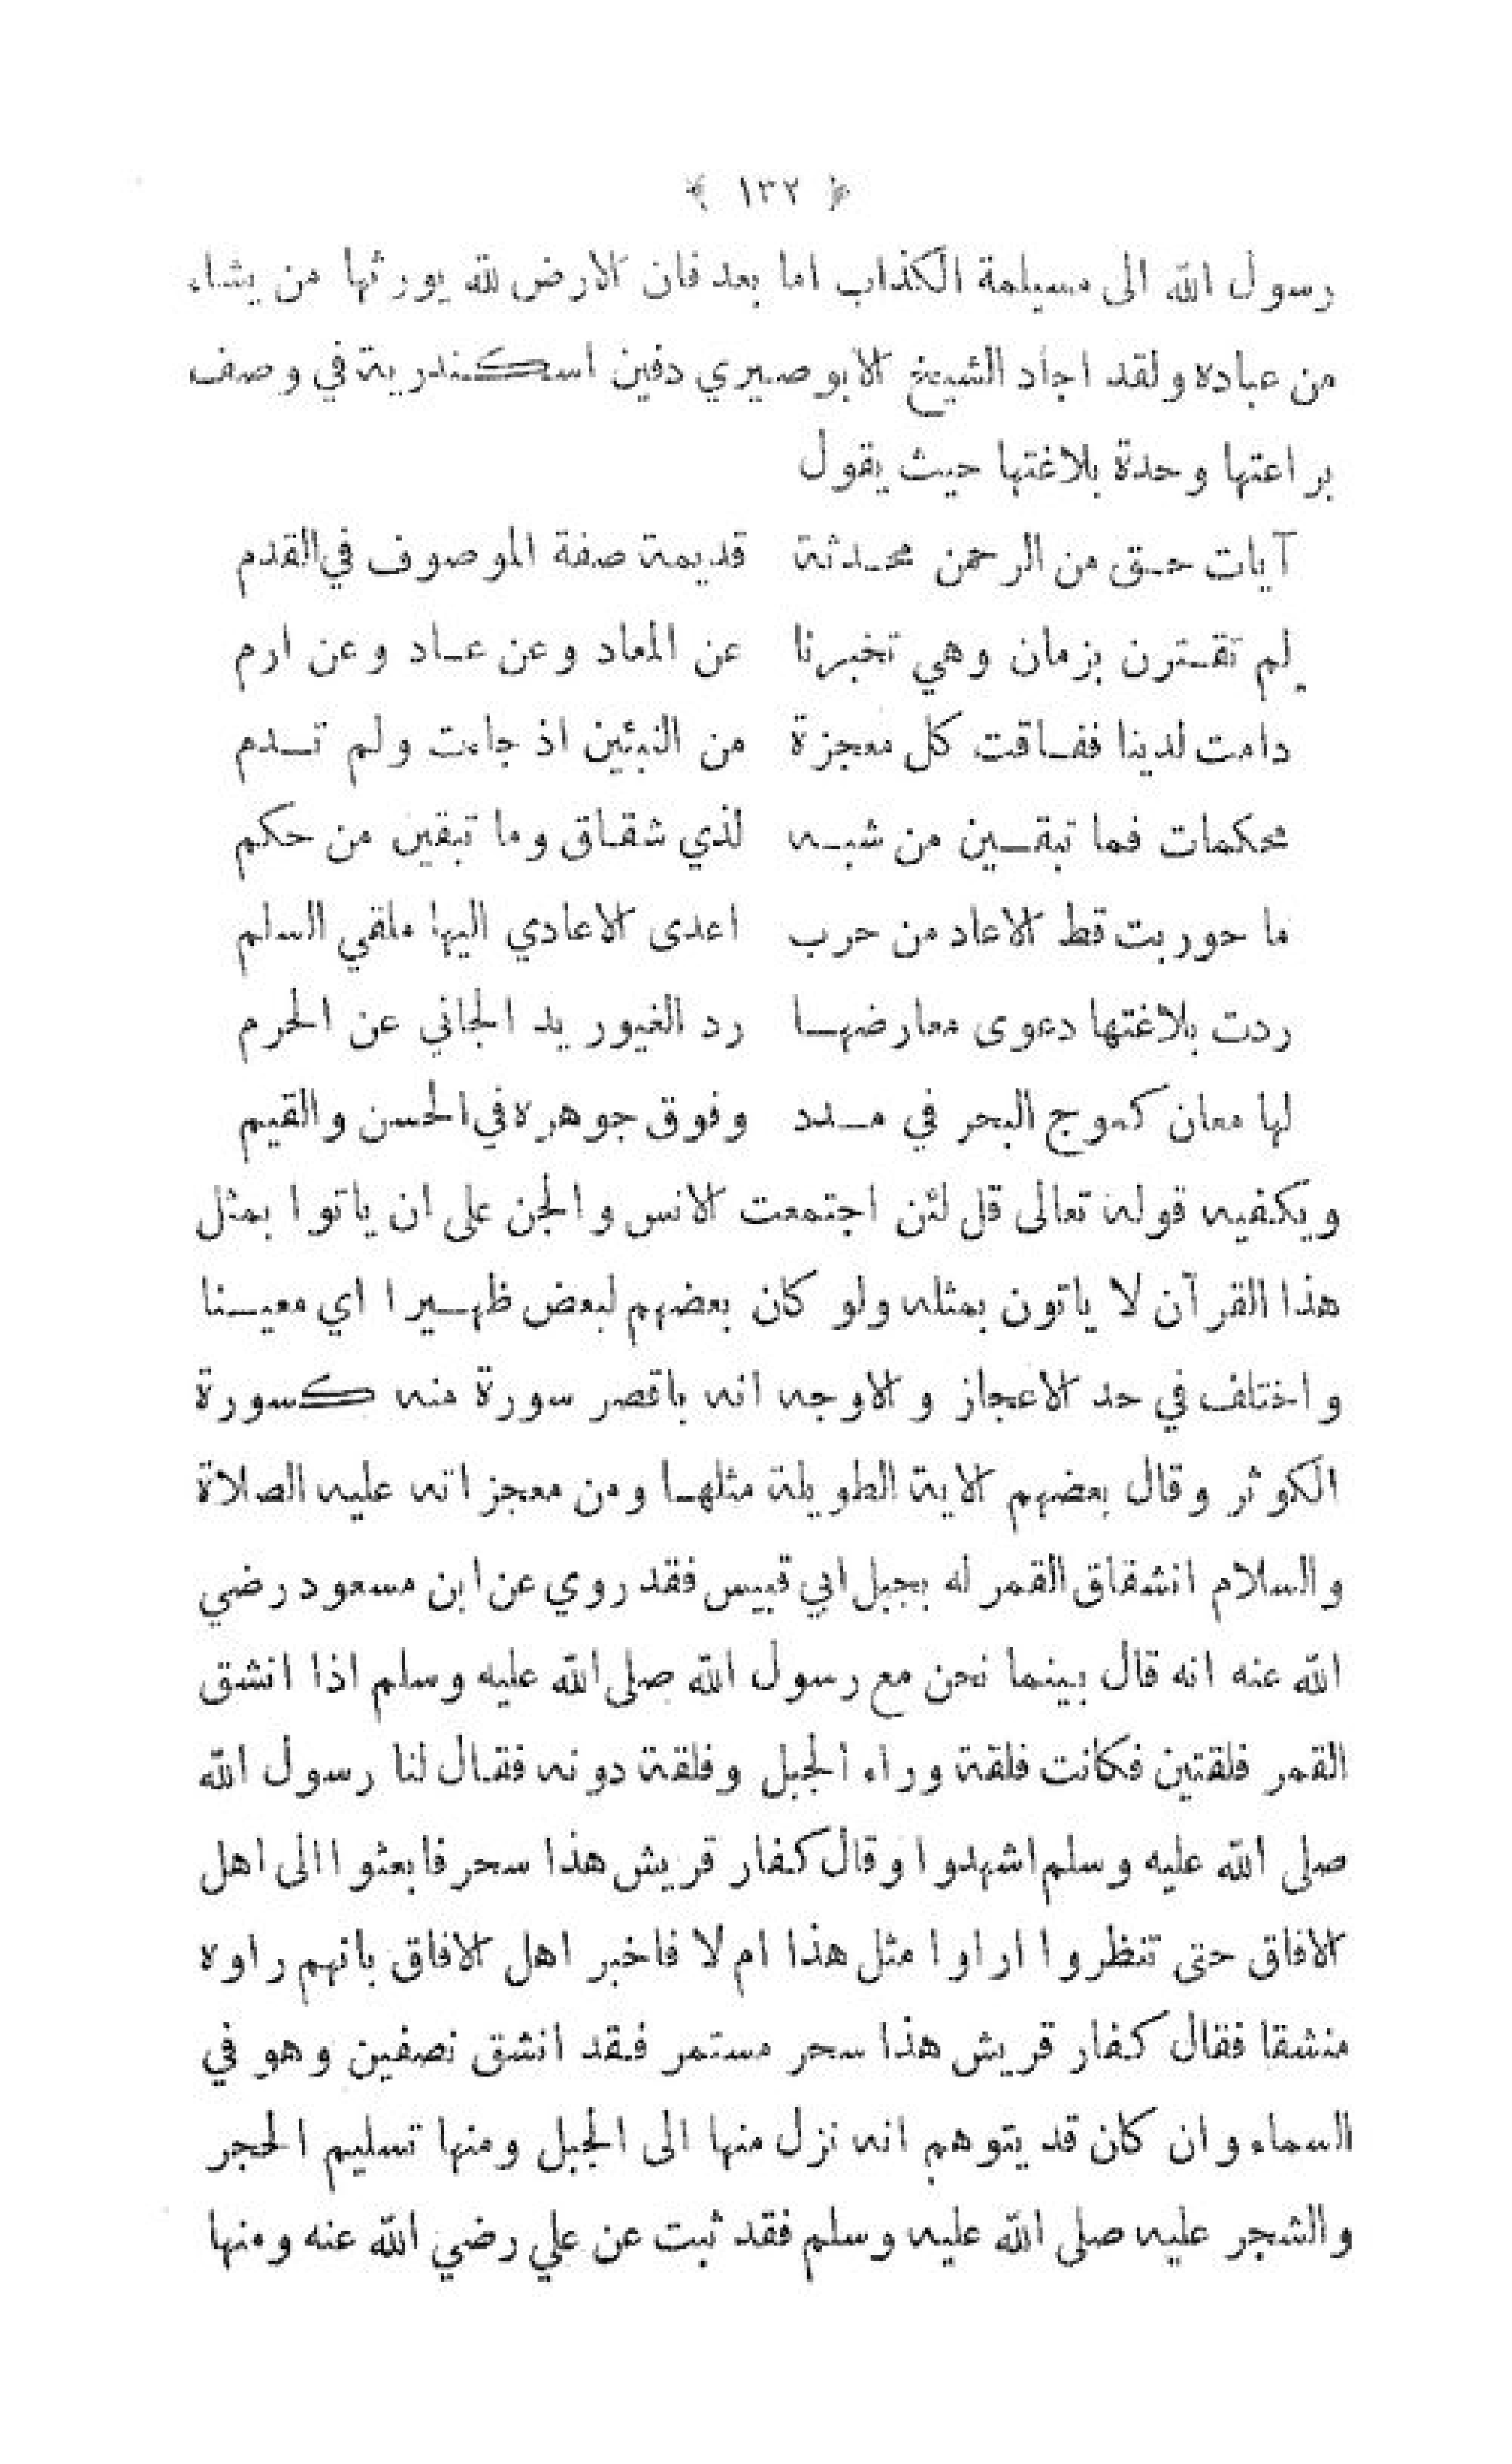 ﴿ ١٣٢ ﴾
رسول الله الى مسيلمة الكذاب اما بعد فان الارض لله يورثها من يشاء
من عباده ولقد اجاد الشيخ الابوصيري دفين اسكندرية في وصف
براعتها وحدة بلاغتها حيث يقول
آيات حق من الرحمن محدثة قديمة صفة الموصوف في القدم
لم تقترن بزمان وهي تخبرنا عن المعاد وعن عاد وعن ارم
دامت لدينا ففاقت كل معجزة من النبئين اذ جاءت ولم تدم
محكمات فما تبقين من شبه لذي شقاق وما تبقين من حكم
ما حوربت قط الاعاد من حرب اعدى الاعادي اليها ملقي السلم
ردت بلاغتها دعوى معارضها رد الغيور يد الجاني عن الحرم
لها معان كموج البحر في مدد وفوق جوهره في الحسن والقيم
ويكفيه قوله تعالى قل لئن اجتمعت الانس والجن على ان ياتوا بمثل
هذا القرآن لا ياتون بمثله ولو كان بعضهم لبعض ظهيرا اي معينا
واختلف في حد الاعجاز والاوجه انه باقصر سورة منه كسورة
الكوثر وقال بعضهم الاية الطويلة مثلها ومن معجزاته عليه الصلاة
والسلام انشقاق القمر له بجبل ابي قبيس فقد روي عن ابن مسعود رضي
الله عنه انه قال بينما نحن مع رسول الله صلى الله عليه وسلم اذا انشق
القمر فلقتين فكانت فلقة وراء الجبل وفلقة دونه فقال لنا رسول الله
صلى الله عليه وسلم اشهدوا وقال كفار قريش هذا سحر فابعثوا الى اهل
الافاق حتى تنظروا اراوا مثل هذا ام لا فاخبر اهل الافاق بانهم راوه
منشقا فقال كفار قريش هذا سحر مستمر فقد انشق نصفين وهو في
السماء وان كان قد يتوهم انه نزل منها الى الجبل ومنها تسليم الحجر
والشجر عليه صلى الله عليه وسلم فقد ثبت عن علي رضي الله عنه ومنها